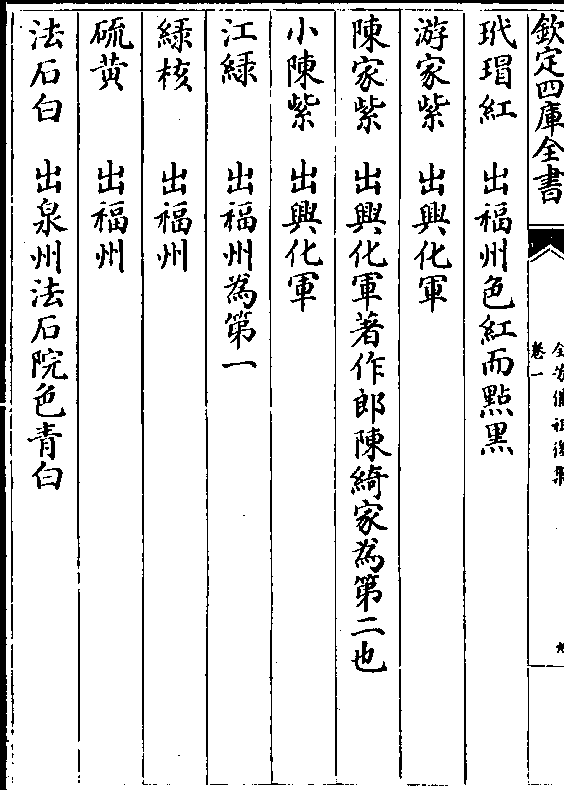 欽定四庫全書
卷一
玳瑁紅　出福州色紅而點黑
游家紫　出興化軍
陳家紫　出興化軍著作郎陳綺家為第二也
小陳紫　出興化軍
江緑　出福州為第一
緑核　出福州
硫黄　出福州
法石白　出泉州法石院色青白